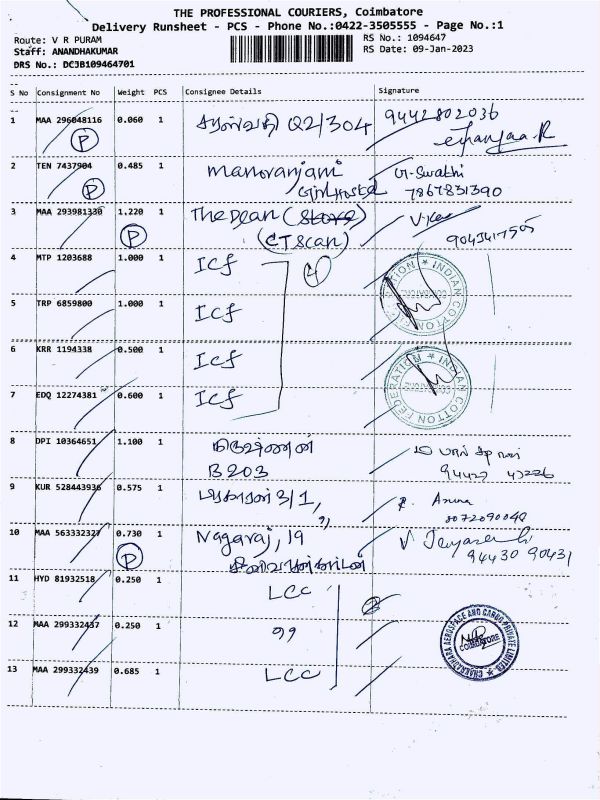 THE PROFESSIONAL COURIERS, Coimbatore
Delivery Runsheet - PCS - Phone No.:0422-3505555 - Page No.:1
Route: V R PURAM
RS No.: 1094647
Staff: ANANDHAKUMAR
RS Date: 09-Jan-2023
DRS No.: DCJB109464701
S No Consignment No Weight PCS Consignee Details Signature
1 MAA 296048116 0.060 1 Q2/304 9442802036
P
2 TEN 7437904 0.485 1 Manoranjani G. Swathi
P Girl Hostel 7867831390
3 MAA 293981330 1.220 1 The Dean (Store)
P (CT Scan)
4 MTP 1203688 1.000 1 Icf 4
INDIAN COTTON FEDERATION
5 TRP 6859800 1.000 1 Icf
6 KRR 1194338 0.500 1 Icf
INDIAN COTTON FEDERATION
7 EDQ 12274381 0.600 1 Icf
8 DPI 10364651 1.100 1
B203
9 KUR 528443936 0.575 1 3/1, R. Aruna
10 MAA 563332327 0.730 1 Nagaraj, 19
P 94430 90431
11 HYD 81932518 0.250 1 LCC
12 MAA 299332437 0.250 1 ,,
AEROSPACE AND CARGO PRIVATE LIMITED
COIMBATORE
13 MAA 299332439 0.685 1 LCC